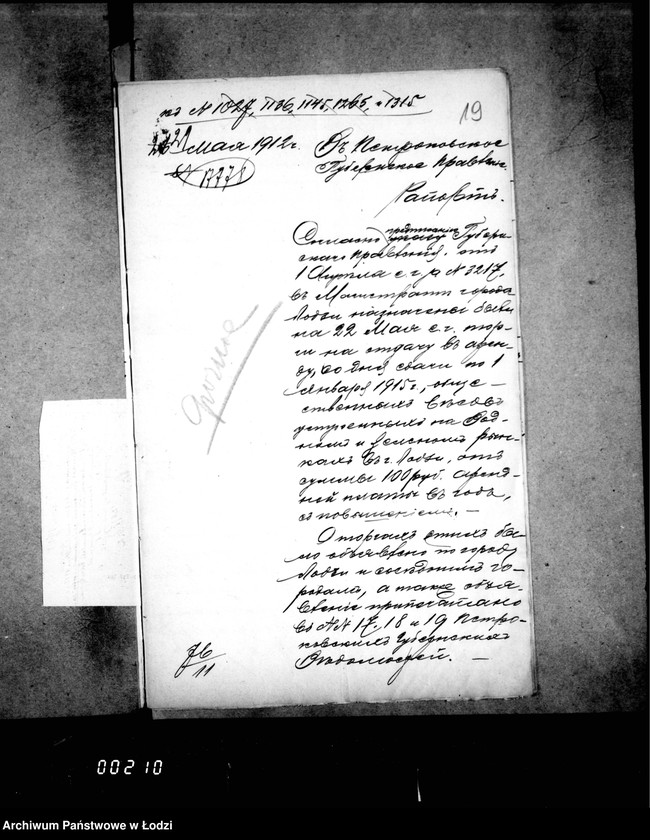 къ №№ 1027, 1136, 1145, 1265, и 1315
19
21 Мая 1912 г.
17778
Въ Петроковское
Губернское Правлен.
Рапортъ.
Согласно предписанію Губерн-
скаго Правленія, отъ
1 Апрѣля с. г. за № 3217,
въ Магистратѣ города
Лодзи назначены были
на 22 Мая с. г. тор-
ги на отдачу въ арен-
ду, со дня сдачи по 1
Января 1915 г., обще-
ственныхъ вѣсовъ
устроенныхъ на Вод-
номъ и Зеленомъ рын-
кахъ въ г. Лодзи, отъ
суммы 100 руб. аренд-
ной платы въ годъ,
съ повышеніемъ. —
О торгахъ этихъ бы-
ло объявлено по городу
Лодзи и сосѣднимъ го-
родамъ, а также объя-
вленіе припечатано
въ №№ 17, 18 и 19 Петро-
ковскихъ Губернскихъ
Вѣдомостей. —
76/11
00210
Archiwum Państwowe w Łodzi